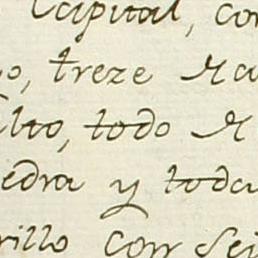 Capital, con
o, treze Rea
lto, todo R
edra y toda
rillo con sei